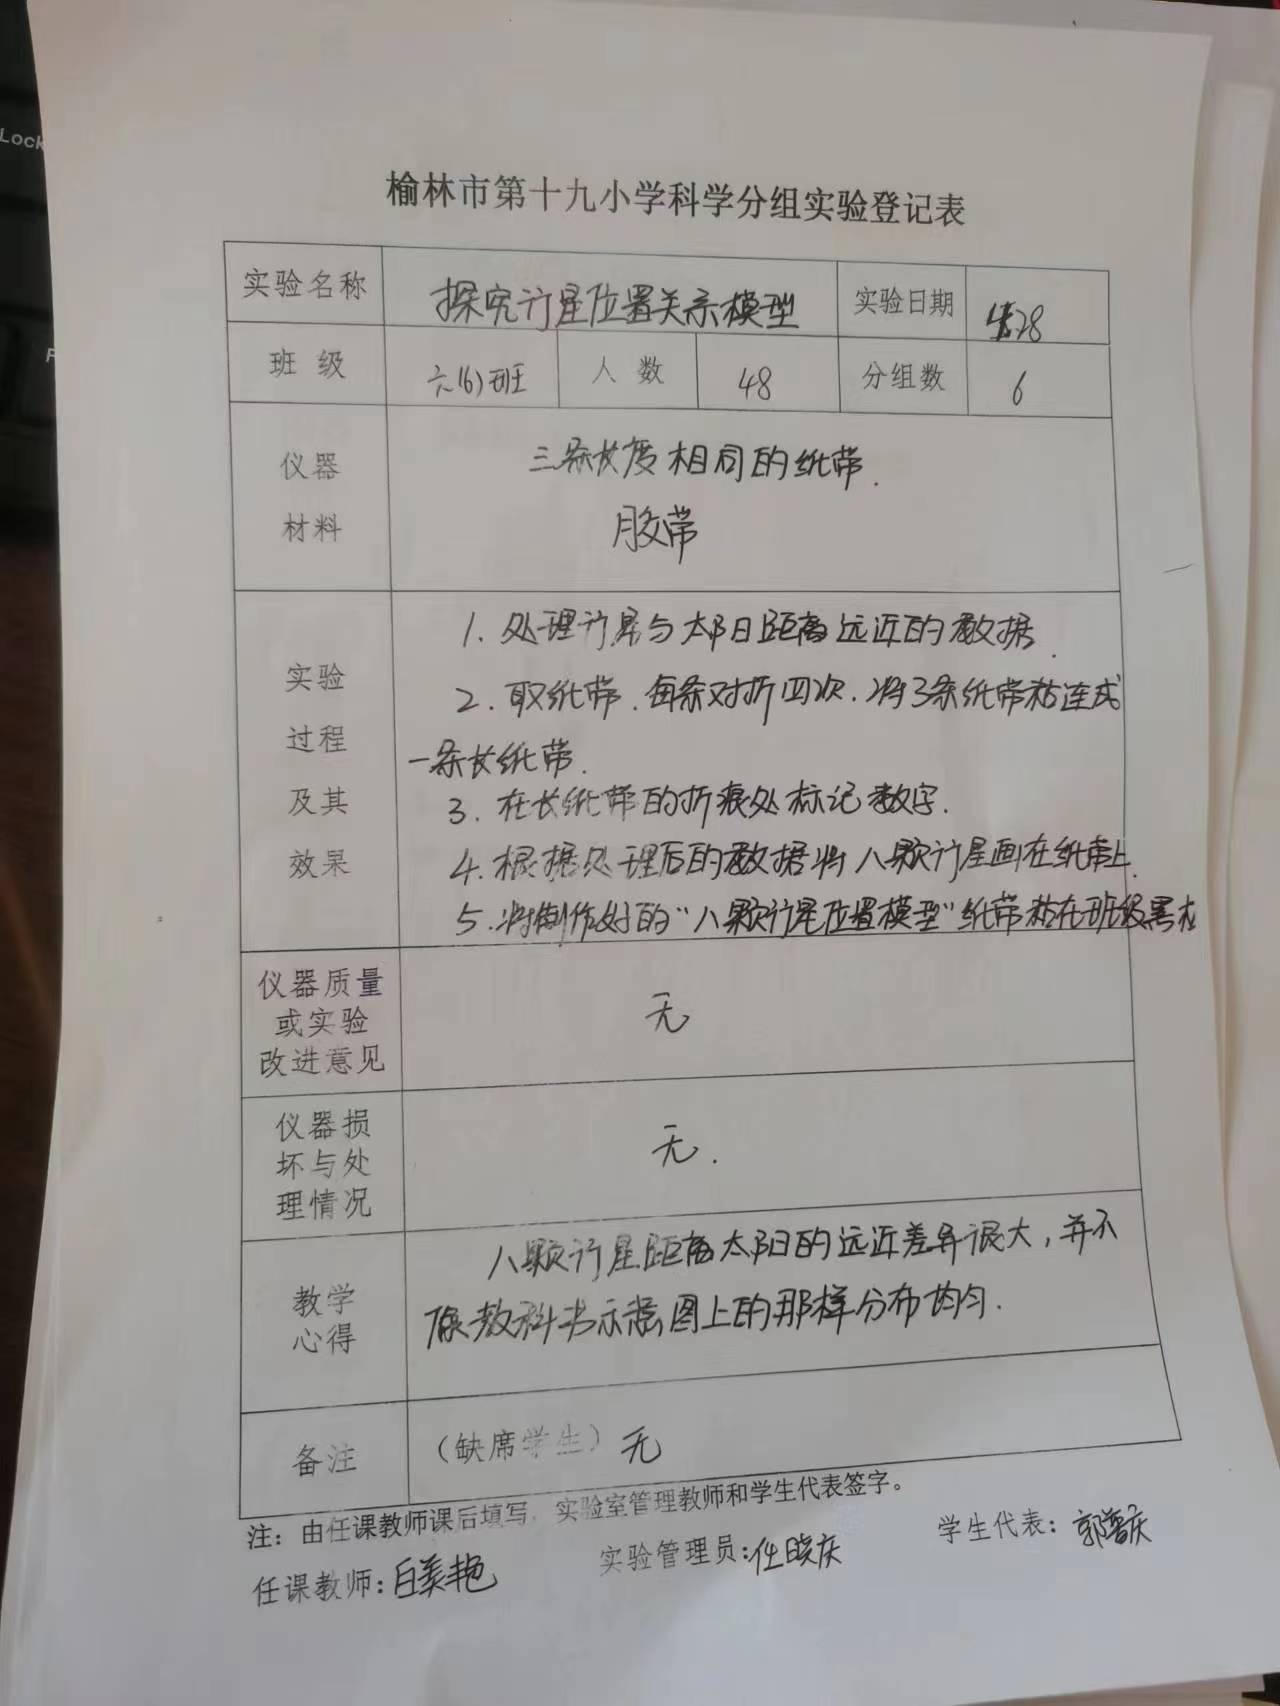 Lock
F
榆林市第十九小学科学分组实验登记表
实验名称 探究行星位置关系模型 实验日期 28
班级 六(6)班 人数 48 分组数 6
仪器
材料
三条长度相同的纸带.
胶带
实验
过程
及其
效果
1. 处理行星与太阳距离远近的数据.
2. 取纸带.每条对折四次.将3条纸带粘连成
一条长纸带.
3. 在长纸带的折痕处标记数字.
4. 根据处理后的数据将八颗行星画在纸带上.
5. 将制作好的“八颗行星位置模型”纸带粘在班级黑板
仪器质量
或实验
改进意见
无
仪器损
坏与处
理情况
无.
教学
心得
八颗行星距离太阳的远近差异很大,并不
像教科书示意图上的那样分布均匀.
备注 (缺席学生) 无
注:由任课教师课后填写,实验室管理教师和学生代表签字。
任课教师:白美艳 实验管理员:任晓庆 学生代表:郭